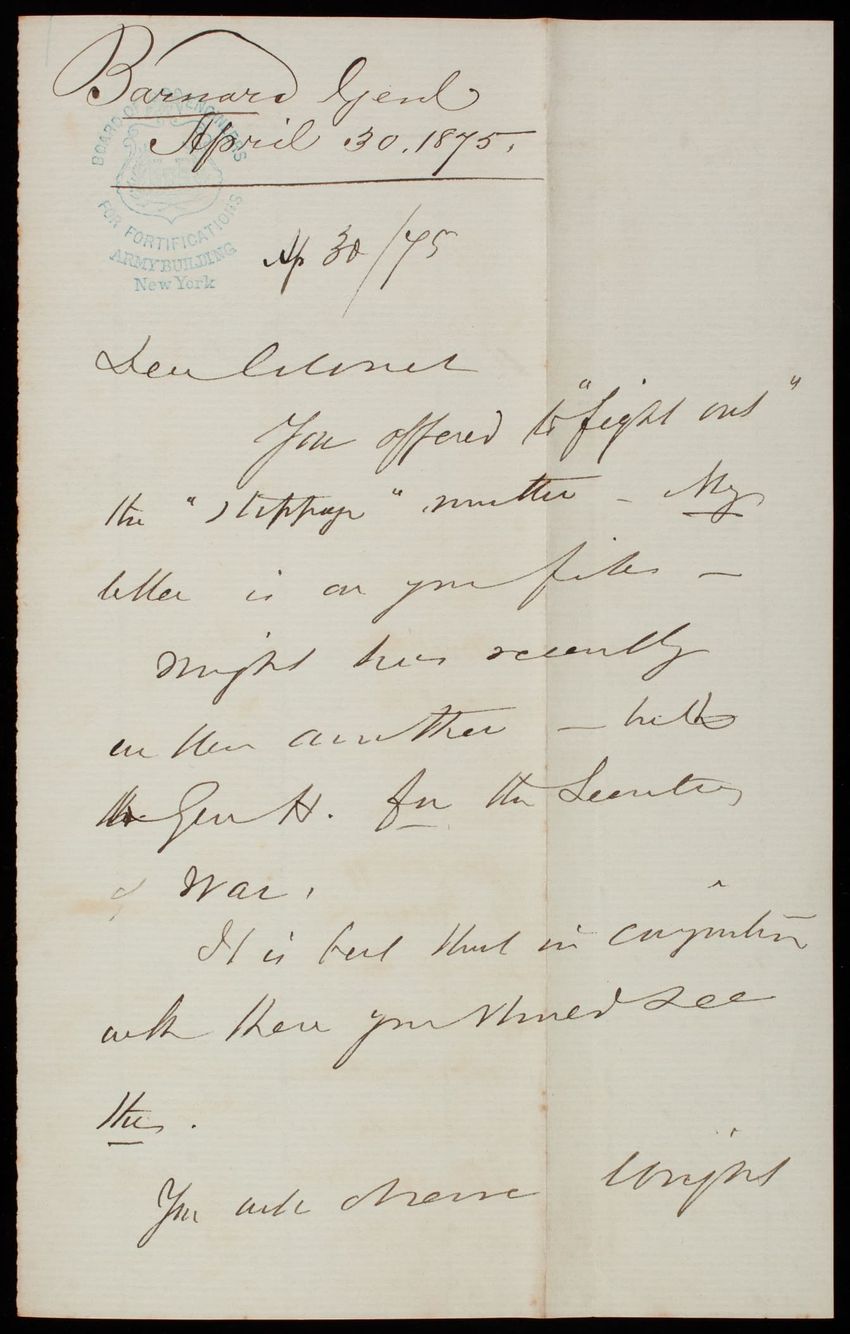 Barnard Genl
April 30. 1875.
BOARD OF ENGINEERS
FOR FORTIFICATIONS
ARMY BUILDING
New York
Ap 30/75
Dear Colonel
You offered to "fight out"
the "stoppage" matter - My
letter is on your files -
Wright has recently
written another - 
Gen H. for the Secretary
of War.
It is best that in conjunction
with these you should see
this.
You will observe Wright